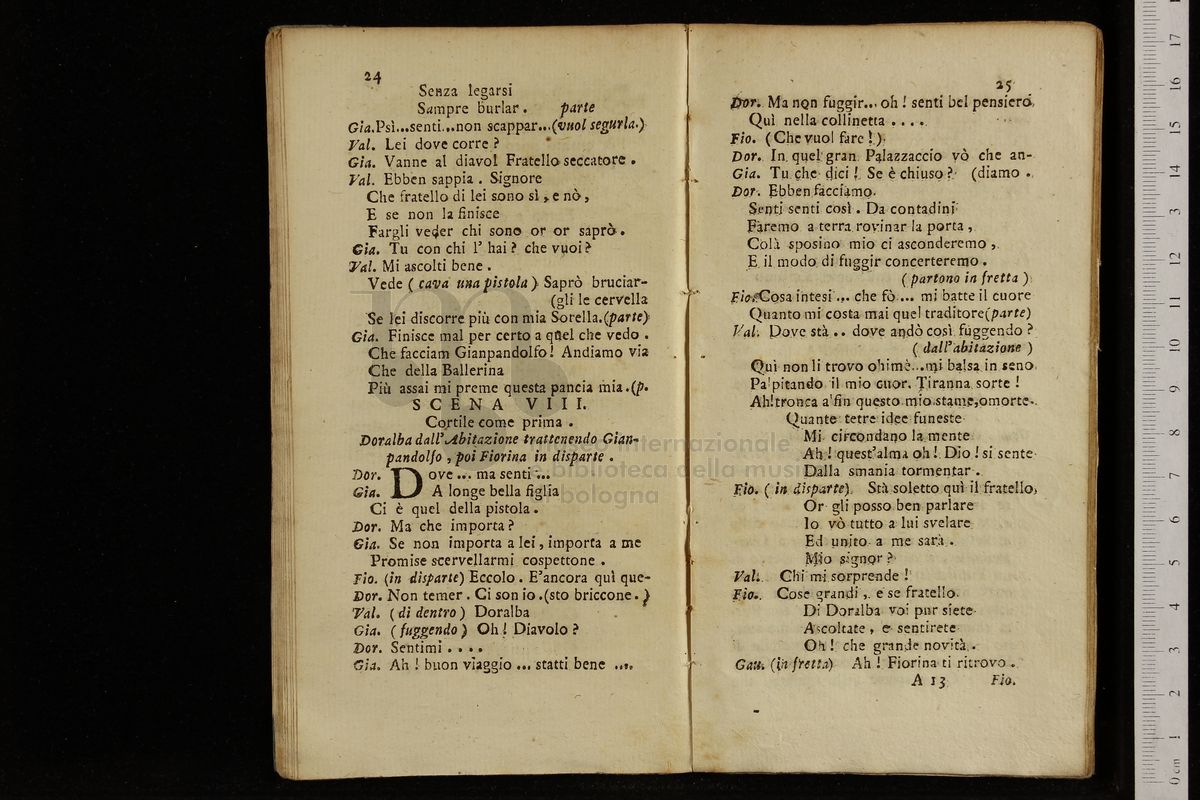 24
Senza legarsi
Sempre burlar . parte
Gia.Psì...senti...non scappar...(vuol seguirla.)
Val. Lei dove corre ?
Gia. Vanne al diavol Fratello seccatore .
Val. Ebben sappia . Signore
Che fratello di lei sono sì , e nò ,
E se non la finisce
Fargli veder chi sono or or saprò .
Gia. Tu con chi l' hai ? che vuoi ?
Val. Mi ascolti bene .
Vede ( cava una pistola ) Saprò bruciar-
(gli le cervella
Se lei discorre più con mia Sorella.(parte)
Gia. Finisce mal per certo a quel che vedo .
Che facciam Gianpandolfo ! Andiamo via
Che della Ballerina
Più assai mi preme questa pancia mia .(p.
SCENA VIII.
Cortile come prima .
Doralba dall'Abitazione trattenendo Gian-
pandolfo , poi Fiorina in disparte .
Dor. Dove ... ma senti ...
Gia. A longe bella figlia
Ci è quel della pistola .
Dor. Ma che importa ?
Gia. Se non importa a lei , importa a me
Promise scervellarmi cospettone .
Fio. (in disparte) Eccolo . E'ancora quì que-
Dor. Non temer . Ci son io .(sto briccone . )
Val. ( di dentro ) Doralba
Gia. ( fuggendo ) Oh ! Diavolo ?
Dor. Sentimi . . . .
Gia. Ah ! buon viaggio ... statti bene ....
25
Dor. Ma non fuggir... oh ! senti bel pensiero,
Quì nella collinetta . . . .
Fio. ( Che vuol fare ! )
Dor. In quel gran Palazzaccio vò che an-
Gia. Tu che dici ! Se è chiuso ? (diamo .
Dor. Ebben facciamo.
Senti senti così . Da contadini
Faremo a terra rovinar la porta ,
Colà sposino mio ci asconderemo ,
E il modo di fuggir concerteremo .
( partono in fretta )
Fio. Cosa intesi ... che fò ... mi batte il cuore
Quanto mi costa mai quel traditore(parte)
Val. Dove stà .. dove andò così fuggendo ?
( dall'abitazione )
Quì non li trovo ohimè...mi balsa in seno
Palpitando il mio cuor. Tiranna sorte !
Ah!tronca alfin questo mio stame,o morte.
Quante tetre idee funeste
Mi circondano la mente
Ah ! quest'alma oh ! Dio ! si sente
Dalla smania tormentar .
Fio. ( in disparte) Stà soletto quì il fratello,
Or gli posso ben parlare
Io vò tutto a lui svelare
Ed unito a me sarà .
Mio signor ?
Val. Chi mi sorprende !
Fio. Cose grandi , e se fratello
Di Doralba voi pur siete
Ascoltate , e sentirete
Oh ! che grande novità .
Gau. (in fretta) Ah ! Fiorina ti ritrovo .
A 13 Fio.
museo internazionale
e biblioteca della musica
bologna
0 cm 1 2 3 4 5 6 7 8 9 10 11 12 13 14 15 16 17